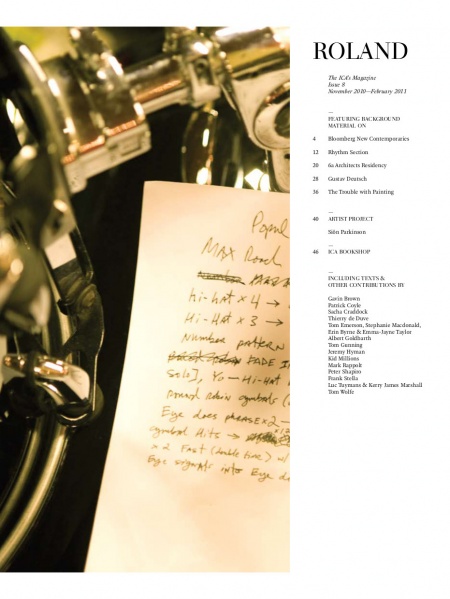 ROLAND
The ICA's Magazine
Issue 8
November 2010—February 2011
—
FEATURING BACKGROUND
MATERIAL ON
4 Bloomberg New Contemporaries
12 Rhythm Section
20 6a Architects Residency
28 Gustav Deutsch
36 The Trouble with Painting
—
40 ARTIST PROJECT
Siôn Parkinson
—
46 ICA BOOKSHOP
—
INCLUDING TEXTS &
OTHER CONTRIBUTIONS BY
Gavin Brown
Patrick Coyle
Sacha Craddock
Thierry de Duve
Tom Emerson, Stephanie Macdonald,
Erin Byrne & Emma-Jayne Taylor
Albert Goldbarth
Tom Gunning
Jeremy Hyman
Kid Millions
Mark Rappolt
Peter Shapiro
Frank Stella
Luc Tuymans & Kerry James Marshall
Tom Wolfe
MAX Roach
Hi-Hat x 4 →
Hi-Hat x 3 →
Number pattern
FADE
Solo], Yo - Hi-Hat
cymbals
Eye does phrase x 2 –
cymbal Hits →
x 2 Fast (double time) w/
Eye signals into Eye